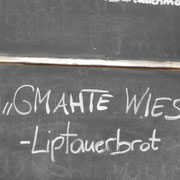 „GMAHTE WIES
-Liptauerbrot